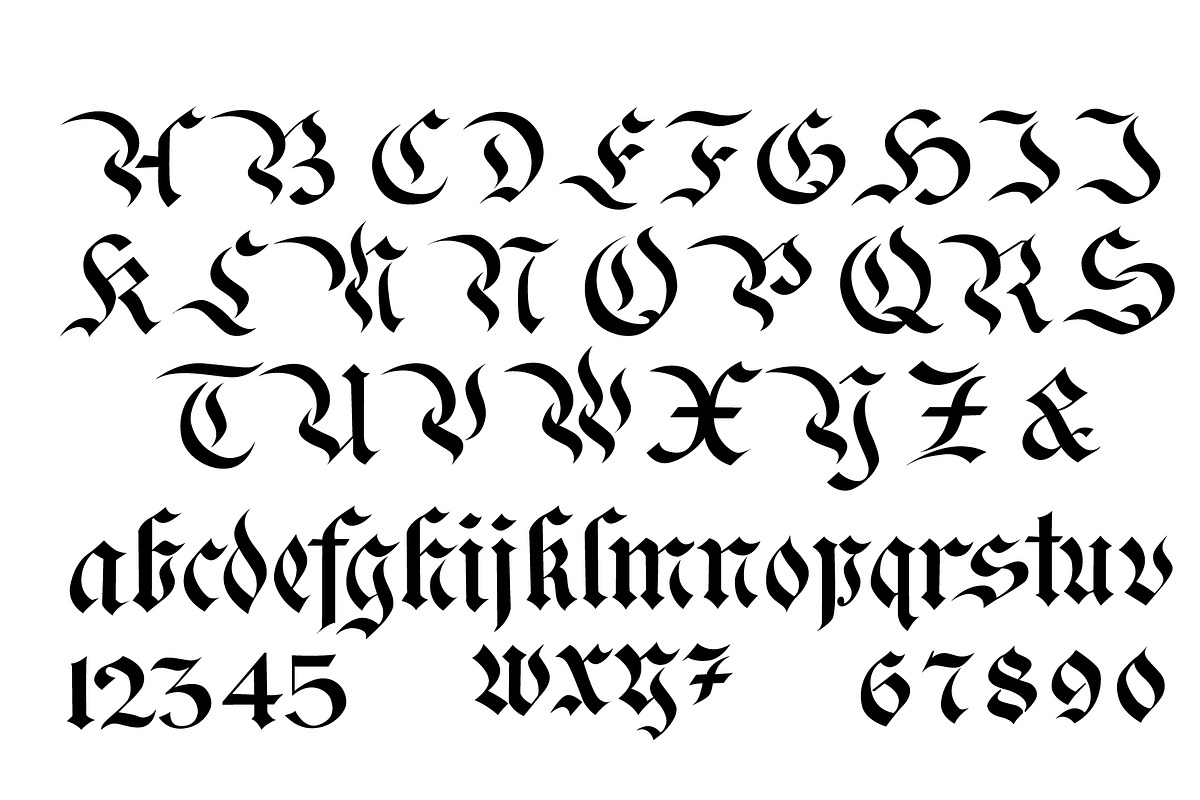 A B C D E F G H I J
K L M N O P Q R S
T U V W X Y Z &
abcdefghijklmnopqrstuv
12345 wxyz 67890